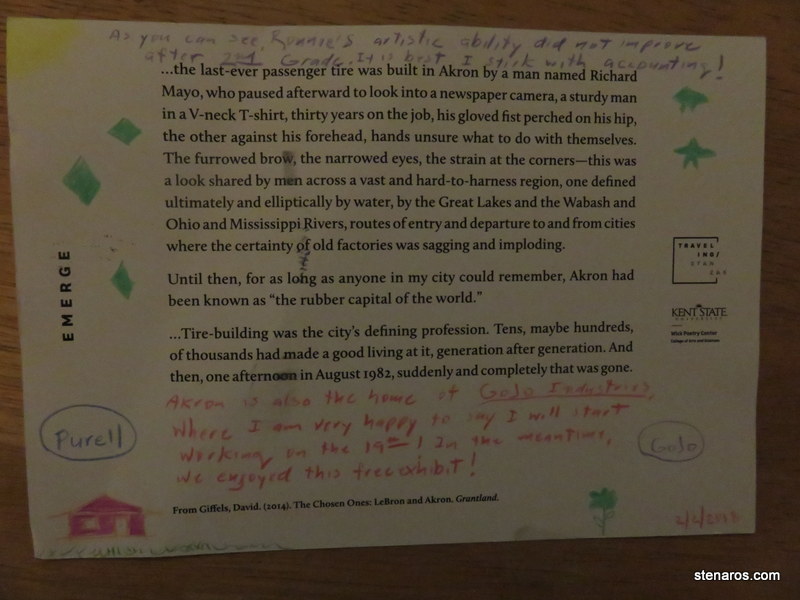 As you can see, Ronnie's artistic ability did not improve
after 2nd Grade. It is best I stick with accounting!
...the last-ever passenger tire was built in Akron by a man named Richard
Mayo, who paused afterward to look into a newspaper camera, a sturdy man
in a V-neck T-shirt, thirty years on the job, his gloved fist perched on his hip,
the other against his forehead, hands unsure what to do with themselves.
The furrowed brow, the narrowed eyes, the strain at the corners—this was
a look shared by men across a vast and hard-to-harness region, one defined
ultimately and elliptically by water, by the Great Lakes and the Wabash and
Ohio and Mississippi Rivers, routes of entry and departure to and from cities
where the certainty of old factories was sagging and imploding.
Until then, for as long as anyone in my city could remember, Akron had
been known as “the rubber capital of the world.”
...Tire-building was the city's defining profession. Tens, maybe hundreds,
of thousands had made a good living at it, generation after generation. And
then, one afternoon in August 1982, suddenly and completely that was gone.
Akron is also the home of GoJo Industries,
where I am very happy to say I will start
working on the 19th! In the meantime,
we enjoyed this free exhibit!
From Giffels, David. (2014). The Chosen Ones: LeBron and Akron. Grantland.
EMERGE
Purell
GoJo
TRAVEL
ING/
STAN
ZAS
KENT STATE
UNIVERSITY
Wick Poetry Center
College of Arts and Sciences
stenaros.com